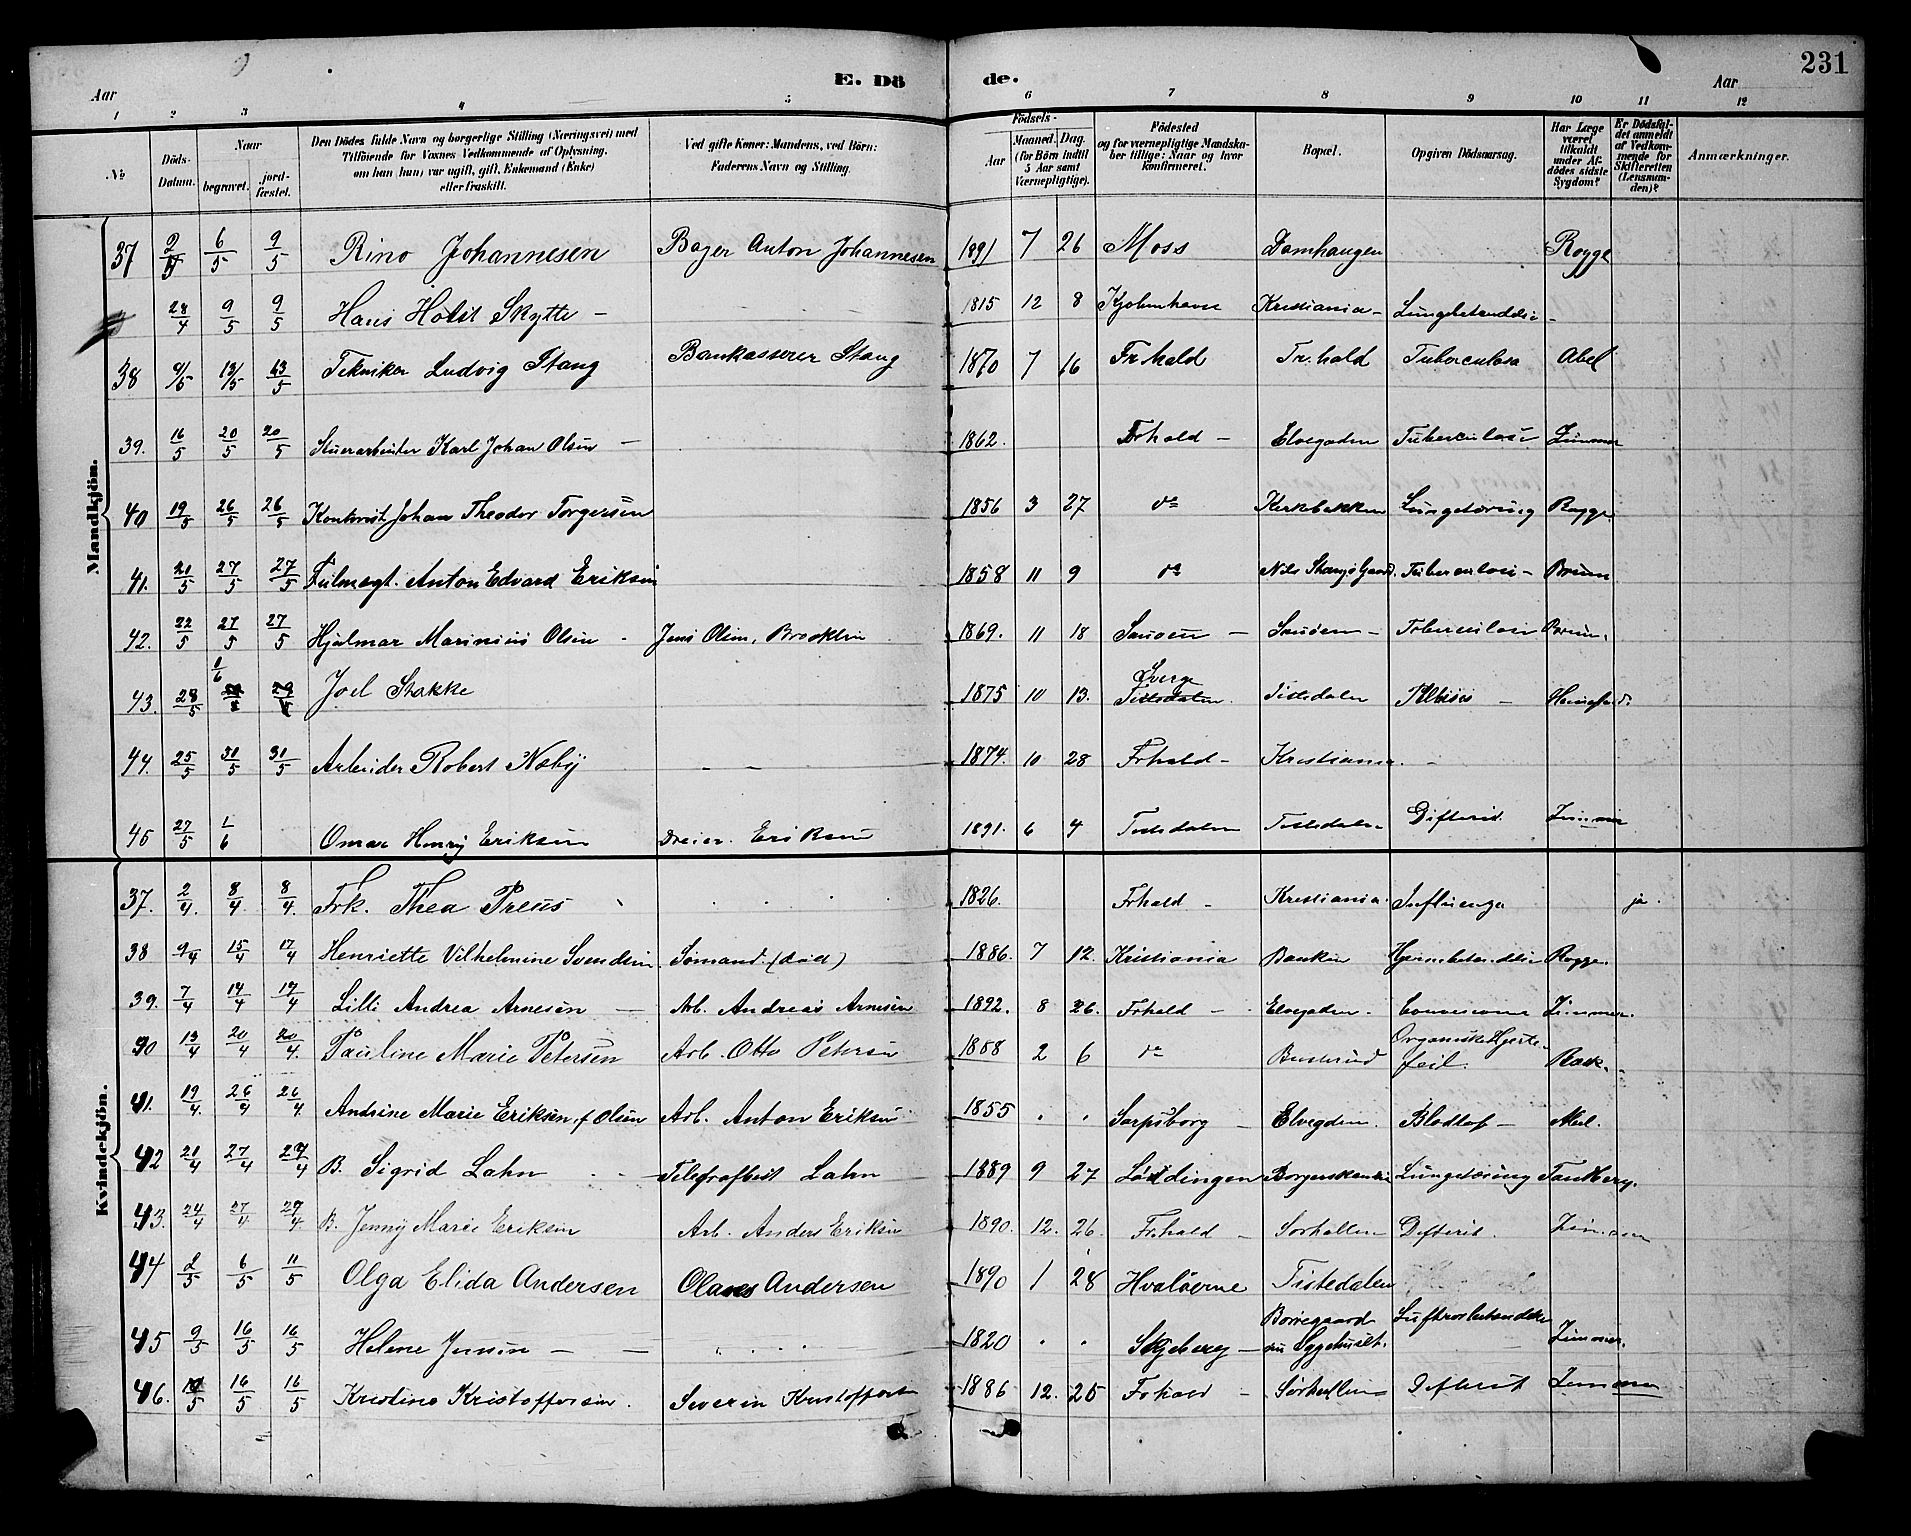 231
E. Dö de.
Aar Aar
1 2 3 4 5 6 7 8 9 10 11 12
No Döds-Datum. Naar begravet. jord-fæstet. Den Dödes fulde Navn og borgerlige Stilling (Næringsvei) med Tilföiende for Voxnes Vedkommende af Oplysning, om han (hun) var ugift, gift, Enkemand (Enke) eller fraskilt. Ved gifte Koner: Mandens, ved Börn: Faderens Navn og Stilling. Födsels- Aar Maaned. Dag. (for Börn indtil 5 Aar samt Værnepligtige). Födested og for værnepligtige Mandska-ber tillige: Naar og hvor konfirmeret. Bopæl. Opgiven Dödsaarsag. Har Læge været tilkaldt under Af-dödes sidste Sygdom? Er Dödsfal-det anmeldt af Vedkom-mende for Skifteretten (Lensman-den)? Anmærkninger.
Mandkjön.
37 2/5 6/5 9/5 Rino Johannesen Bager Anton Johannesen 1891 7 26 Moss Damhaugen Rogge
28/4 9/5 9/5 Hans Holst Skytte - 1815 12 8 Kjobenhavn Kristiania -
38 9/5 13/5 13/5 Tekniker Ludvig Stang Bankasserer Stang 1870 7 16 Fr.hald Fr.hald Tuberculosa Abel
39. 16/5 20/5 20/5 Karl Johan Olsen - 1862. Frhald - Elvegaden Tuberculose Zimmer
40 19/5 26/5 26/5 Kontorist Johan Theodor Torgersen 1856 3 27 do Kirkebakken Lungetæring Rogge
41. 21/5 27/5 27/5 Fulmægt. Anton Edvard Eriksen 1858 11 9 do Nils Stangs Gaard. Tuberculose - Bruun
42. 22/5 27/5 27/5 Hjalmar Marinius Olsen - Jens Olsen, Brooklin 1869. 11 18 Sauøen - Sauøen - Tuberculose Bruun.
43. 28/5 1/6 29/5 Joel Stakke 1875 10 13. Sverge Tistedalen Tistedalen Phtisis -
44. 25/5 31/5 31/5 Arbeider Robert Noby - - 1874. 10 28 Frhald - Kristiania. -
45 27/5 1/6 Omar Henry Eriksen Dreier. Eriksen 1891. 6 4 Tistedalen Tistedalen Difterid. Zimmer
Kvindekjön.
37. 2/4. 8/4. 8/4. Frk. Thea Preus 1826. Frhald - Kristiania. Influenza ja.
38 9/4 15/4 17/4 Henriette Vilhelmine Svendsen. Sømand. (død) 1886. 7 12. Kristiania Banken Hjernebetændelse Rogge.
39. 7/4 14/4 14/4 Lilli Andrea Arnesen - Arb. Andreas Arnesen 1892. 8 26. Frhald - Elvegaden. Zimmer.
40 13/4 20/4 20/4. Pauline Marie Petersen Arb. Otto Petersen 1888 2 6 do Buskrud Organisk Hjerte-feil. Rask.
41. 19/4. 26/4 26/4 Andrine Marie Eriksen, f Olsen Arb. Anton Eriksen 1855 " " Sarpsborg - Elvegden. Blodtab - Abel.
42 21/4 27/4 27/4 B. Sigrid Lahn - - Telegrafbest Lahn 1889 9 27 Lødingen Borgerskandsen Lungetæring Tandberg.
43. 24/4 27/4 27/4. B. Jenny Marie Eriksen Arb. Anders Eriksen 1890. 12. 26. Frhald - Sørhallen Difterit. Zimmer
44 2/5 6/5 11/5 Olga Elida Andersen Olaves Andersen 1890 1 28 Hvaløerne Tistedalen
45 9/5 16/5 16/5 Helene Jensen - - 1820 " " Skjeberg - Borregaard nu Sygehuset. Luftrørsbetændelse Zimmer.
46. 16/5 16/5 Kristine Kristoffersen. Severin Kristoffersen 1886 12. 25 Frhald - Sørhallen Difterit Zimmer